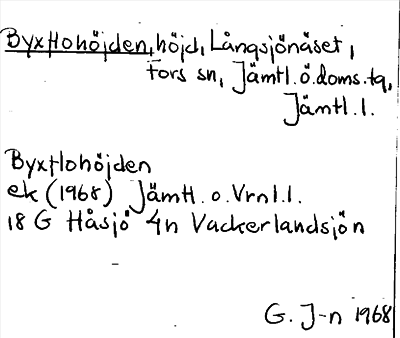 Byxtlohöjden, höjd, Långsjönäset,
Fors sn, Jämtl. ö. doms. tg,
Jämtl. l.
Byxtlohöjden
ek (1968) Jämtl. o. Vrnl. l.
18 G Håsjö 4n Vackerlandsjön
G. J-n 1968